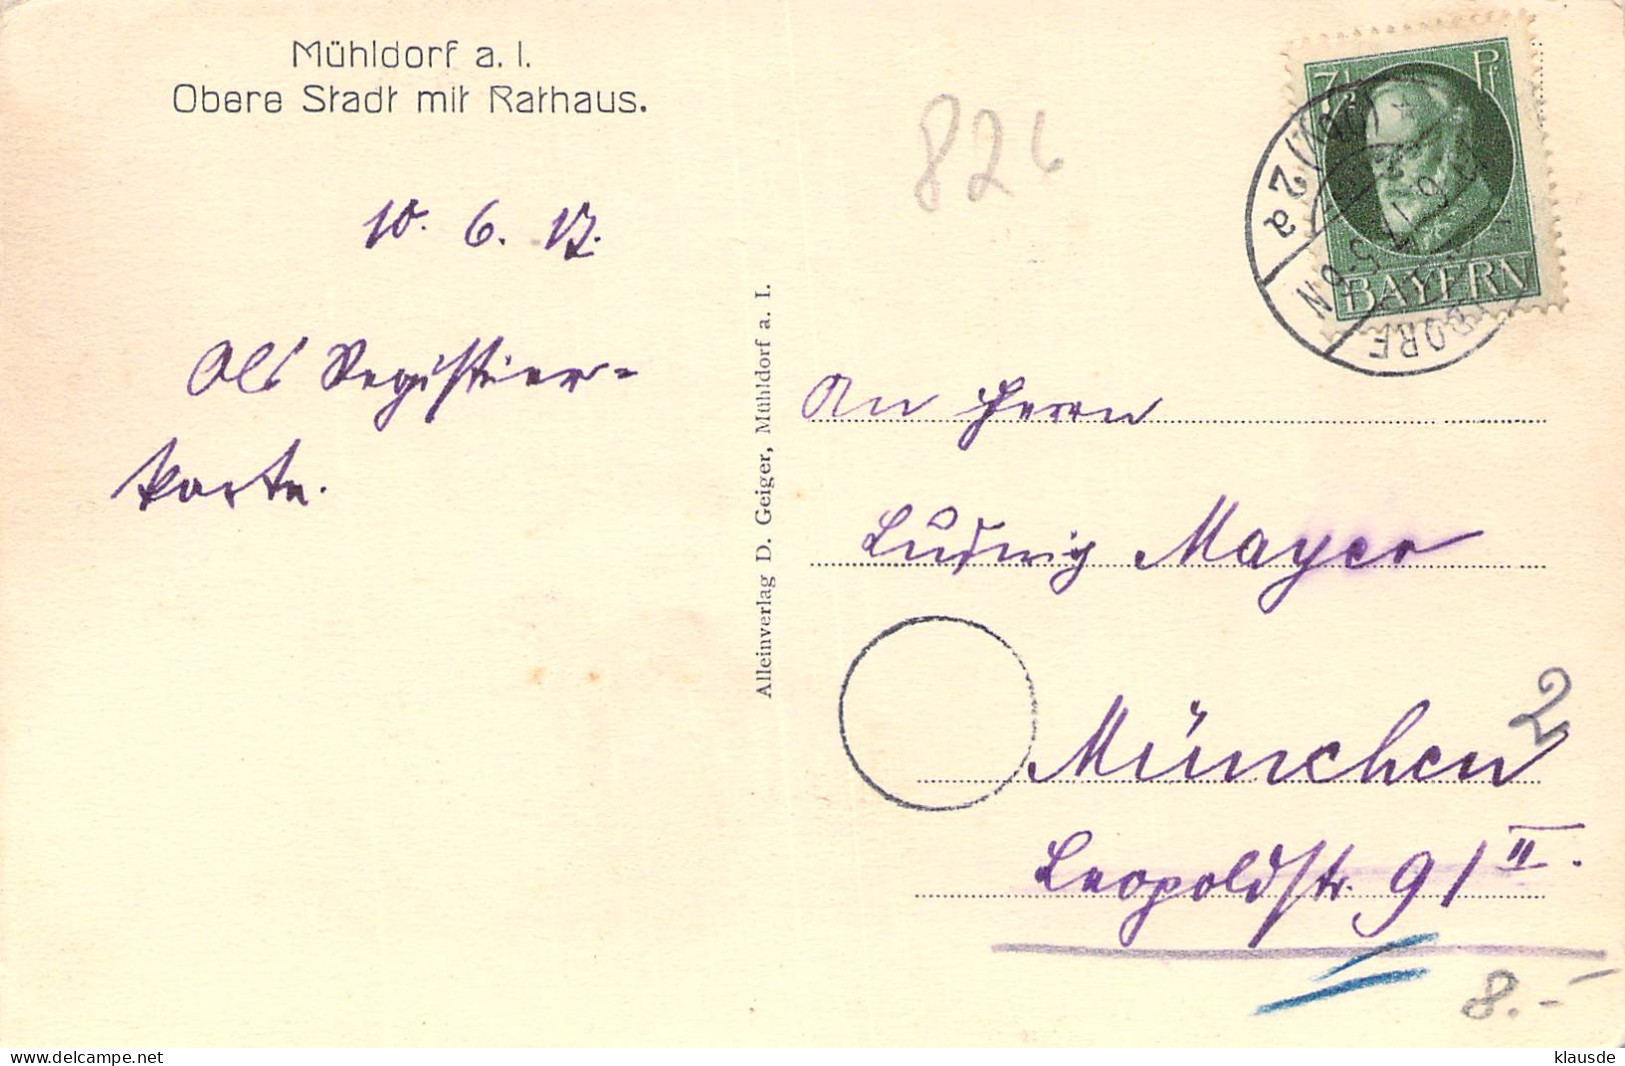 Mühldorf a. I.
Obere Stadt mit Rathaus.
10. 6. 17.
Als Registrier-
karte.
Alleinverlag D. Geiger, Mühldorf a. I.
826
7½ Pf
BAYERN
2a
5-6N
DORF
An Herrn
Ludwig Mayer
München
2
Leopoldstr. 91 II.
8.-
klausde